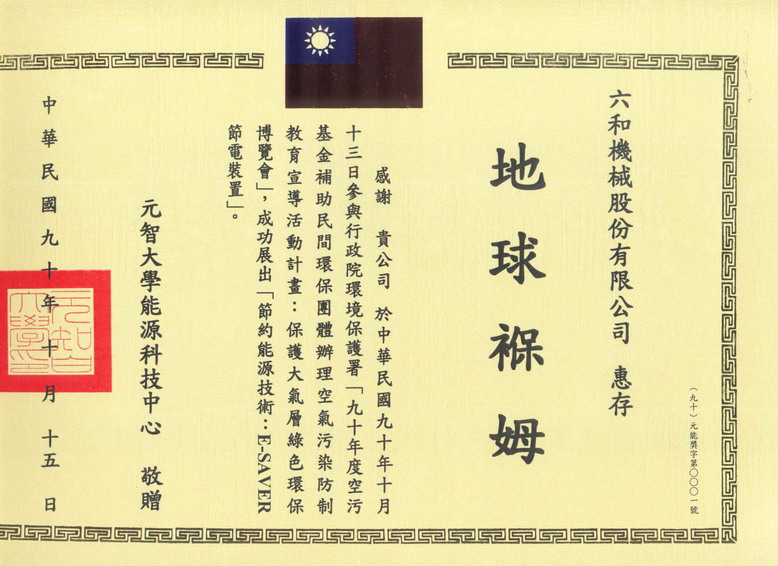 （九十）元能獎字第〇〇〇一號
六和機械股份有限公司　惠存
地球褓姆
感謝　貴公司　於中華民國九十年十月
十三日參與行政院環境保護署「九十年度空污
基金補助民間環保團體辦理空氣污染防制
教育宣導活動計畫：保護大氣層綠色環保
博覽會」，成功展出「節約能源技術：E-SAVER
節電裝置」。
元智大學能源科技中心　敬贈
中華民國九十年十月十五日
元智大學